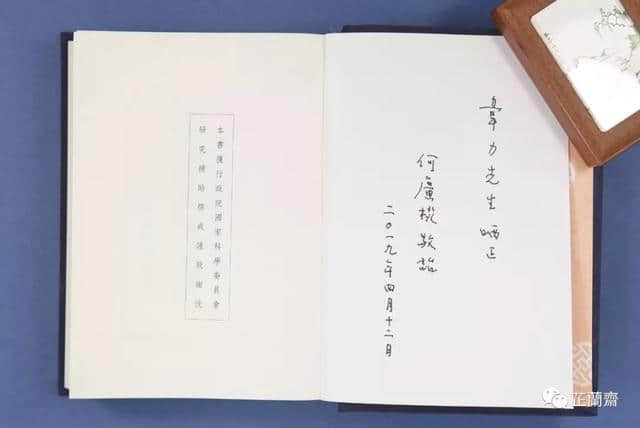 韋力先生哂正
何廣棪敬詒
二〇一九年四月十二日
本書獲行政院國家科學委員會
研究補助撰成謹致謝忱
芷蘭齋